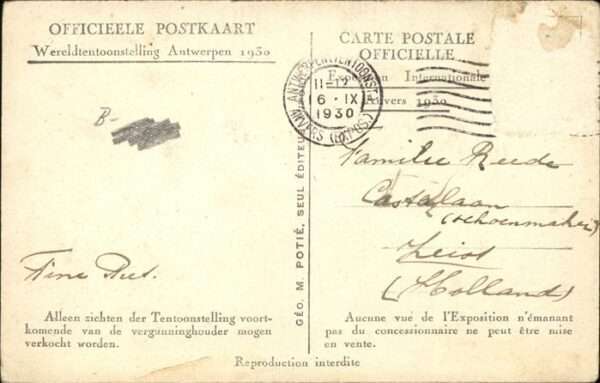 OFFICIEELE POSTKAART
Wereldtentoonstelling Antwerpen 1930
B-
Tine Piet.
Alleen zichten der Tentoonstelling voort-
komende van de vergunninghouder mogen
verkocht worden.
GÉO. M. POTIÉ, SEUL ÉDITEUR
CARTE POSTALE
OFFICIELLE
Exposition Internationale
Anvers 1930
ANTWERPEN (TENTOONST.)
11-12
6 · IX
1930
ANVERS (EXPOS.)
Familie Reede
Castellaan
(schoenmaker)
Zeist
(Holland)
Aucune vue de l'Exposition n'émanant
pas du concessionnaire ne peut être mise
en vente.
Reproduction interdite